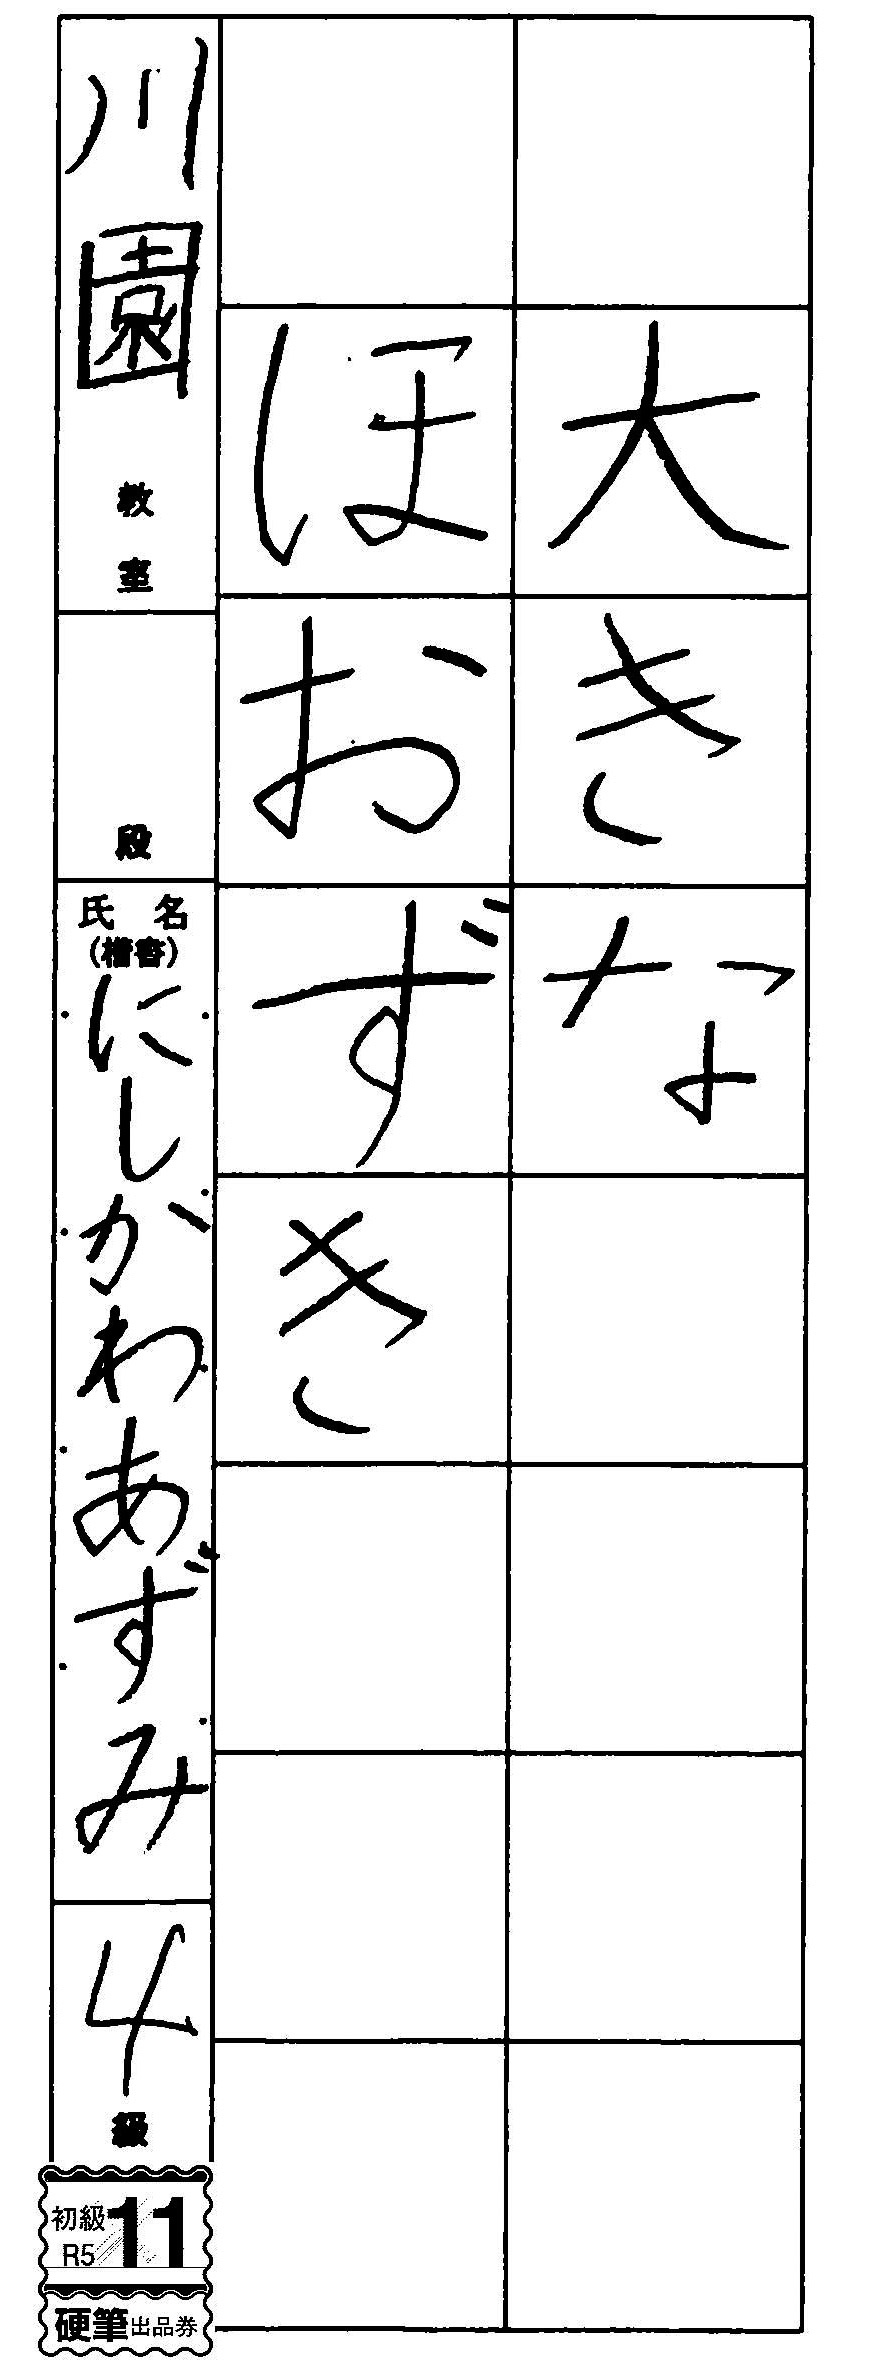 大きな
ほおずき
川園教室
段
氏名
(楷書)
にしかわあずみ
4級
初級
R5
11
硬筆出品券